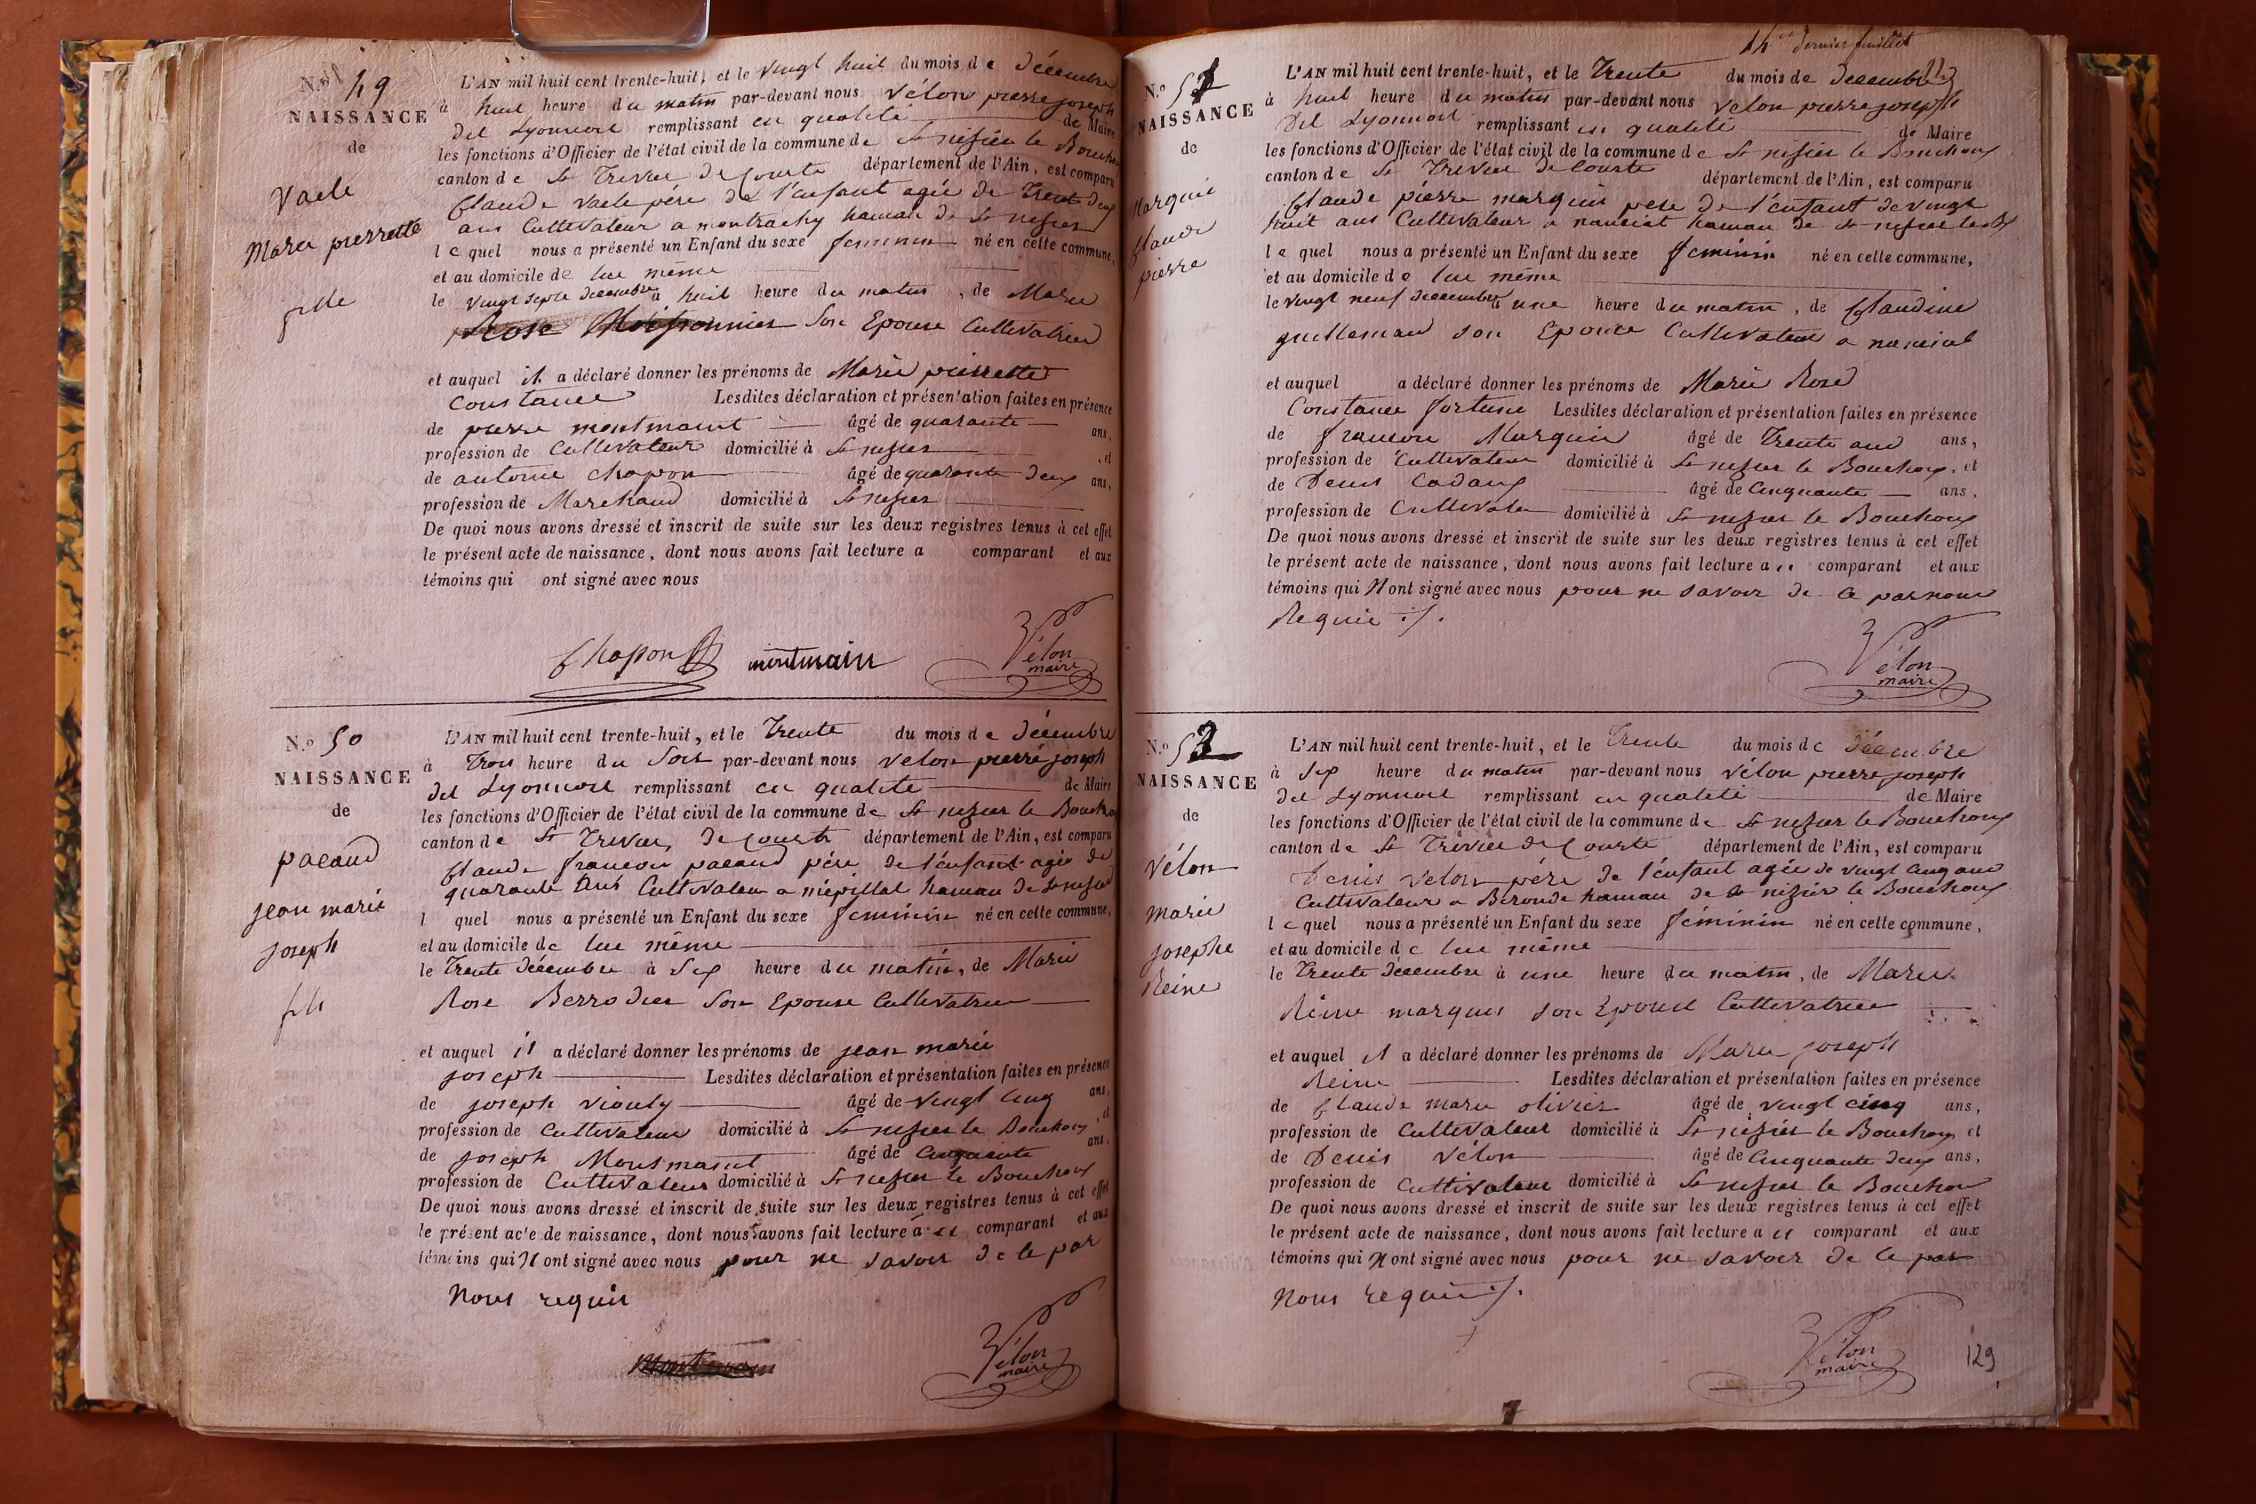 N.º 49
NAISSANCE
de
Vacle
Marie pierrette
fille
L'AN mil huit cent trente-huit, et le vingt huit du mois de décembre
à huit heure du matin par-devant nous vélon pierre joseph
del Lyonnois remplissant en qualité de Maire
les fonctions d'Officier de l'état civil de la commune de St nisier le Bouchou
canton de St Trivier de Courte département de l'Ain, est comparu
Claude vacle père de l'enfant agée de Trente deux
ans Cultivateur a montrachy hamau de St nisier
le quel nous a présenté un Enfant du sexe féminin né en cette commune,
et au domicile de lui même
le vingt septe decembre à huit heure du matin, de Marie
Rose son Epouse Cultivatrice
et auquel il a déclaré donner les prénoms de Marie pierrette
Constance Lesdites déclaration et présentation faites en présence
de pierre montmaint âgé de quarante ans,
profession de Cultivateur domicilié à St nisier et
de antoine chapon âgé de quarante deux ans,
profession de Marchand domicilié à St nisier
De quoi nous avons dressé et inscrit de suite sur les deux registres tenus à cet effet
le présent acte de naissance, dont nous avons fait lecture a comparant et aux
témoins qui ont signé avec nous
Chapon montmain Vélon
maire
N.º 50
NAISSANCE
de
pacaud
jean marie
joseph
fils
L'AN mil huit cent trente-huit, et le Trente du mois de décembre
à Trois heure du Soir par-devant nous vélon pierre joseph
del Lyonnois remplissant en qualité de Maire
les fonctions d'Officier de l'état civil de la commune de St nizier le Bouchou
canton de St Trivier de Courte département de l'Ain, est comparu
Claude francois pacaud père de l'enfant agée de
quarante ans Cultivateur a mépillat hamau de St nisier
l quel nous a présenté un Enfant du sexe féminin né en cette commune,
et au domicile de lui même
le Trente décembre à Six heure du matin, de Marie
Rose Berrodier son Epouse Cultivatrice
et auquel il a déclaré donner les prénoms de jean marie
joseph Lesdites déclaration et présentation faites en présence
de joseph viouly âgé de vingt cinq ans,
profession de Cultivateur domicilié à St nisier le Bouchoux, et
de joseph Montmaint âgé de cinquante ans,
profession de Cultivateur domicilié à St nisier le Bouchoux
De quoi nous avons dressé et inscrit de suite sur les deux registres tenus à cet effet
le présent acte de naissance, dont nous avons fait lecture à u comparant et aux
témoins qui N ont signé avec nous pour ne savoir de le par
Nous requis
Montmain Vélon
maire
14 et dernier feuillet
N.º 51
NAISSANCE
de
Marquis
Claude
pierre
L'AN mil huit cent trente-huit, et le Trente du mois de decembre
à huit heure du matin par-devant nous vélon pierre joseph
del Lyonnois remplissant en qualité de Maire
les fonctions d'Officier de l'état civil de la commune de St nisier le Bouchoux
canton de St Trivier de Courte département de l'Ain, est comparu
Claude pierre marquis père de l'enfant de vingt
huit ans Cultivateur a nanciat hamau de St nisier le B
le quel nous a présenté un Enfant du sexe féminin né en cette commune,
et au domicile de lui même
le vingt neuf decembre à une heure du matin, de Claudine
guilleman son Epouse Cultivateur a nanciat
et auquel a déclaré donner les prénoms de Marie Rose
Constance fortune Lesdites déclaration et présentation faites en présence
de francois Marquis âgé de Trente ans ans,
profession de Cultivateur domicilié à St nisier le Bouchoux, et
de Denis Cadoux âgé de Cinquante ans,
profession de Cultivate domicilié à St nizier le Bouchoux
De quoi nous avons dressé et inscrit de suite sur les deux registres tenus à cet effet
le présent acte de naissance, dont nous avons fait lecture a u comparant et aux
témoins qui N ont signé avec nous pour ne savoir de ce par nous
Requis ./.
Vélon
maire
N.º 52
NAISSANCE
de
Vélon
Marie
josephe
Reine
L'AN mil huit cent trente-huit, et le Trente du mois de décembre
à Six heure du matin par-devant nous vélon pierre joseph
del Lyonnois remplissant en qualité de Maire
les fonctions d'Officier de l'état civil de la commune de St nizier le Bouchoux
canton de St Trivier de Courte département de l'Ain, est comparu
Denis vélon père de l'enfant agée de vingt cinq ans
Cultivateur a Béroude hamau de St nizier le Bouchoux
le quel nous a présenté un Enfant du sexe féminin né en cette commune,
et au domicile de lui même
le Trente decembre à une heure du matin, de Marie
Reine marquis son Epouse Cultivatrice
et auquel il a déclaré donner les prénoms de Marie joseph
Reine Lesdites déclaration et présentation faites en présence
de Claude marie olivier âgé de vingt cinq ans,
profession de Cultivateur domicilié à St nizier le Bouchoux et
de Denis vélon âgé de Cinquante deux ans,
profession de Cultivateur domicilié à St nisier le Bouchou
De quoi nous avons dressé et inscrit de suite sur les deux registres tenus à cet effet
le présent acte de naissance, dont nous avons fait lecture a u comparant et aux
témoins qui N ont signé avec nous pour ne savoir de le par
Nous requis ./.
Vélon
maire
129